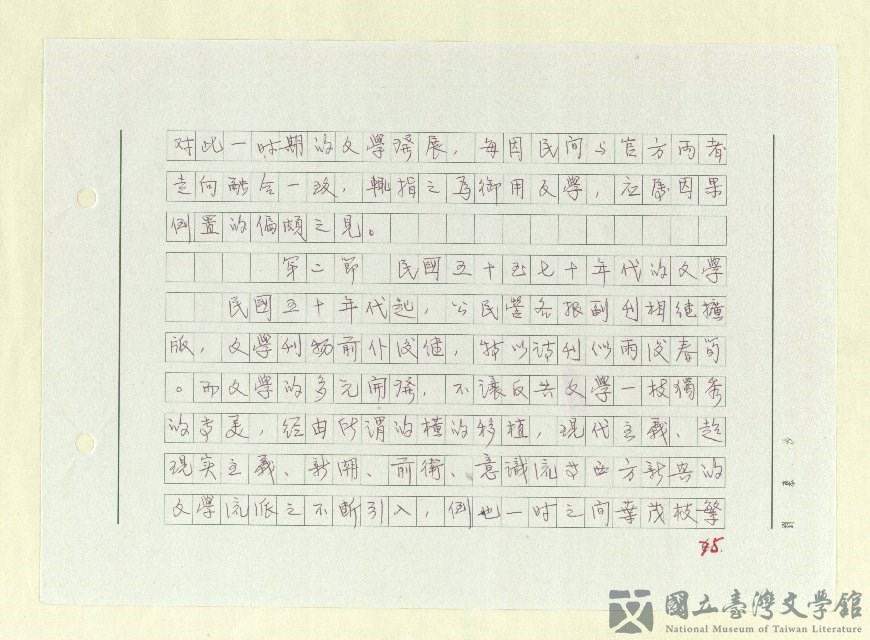 对此一时期的文學發展，每因民间与官方两者
走向融合一致，輒指之为御用文學，应屬因果
倒置的偏頗之見。
第二節　民國五十至七十年代的文學
民國五十年代起，公民營各报副刊相继擴
版，文學刊物前仆後继，特以诗刊似雨後春筍
。而文學的多元開發，不讓反共文學一枝獨秀
的専美，经由所谓的橫的移植，現代主義、超
現实主義、新潮、前衛、意識流等西方新興的
文學流派之不断引入，倒也一时之间葉茂枝繁
75.
國立臺灣文學館
National Museum of Taiwan Literature